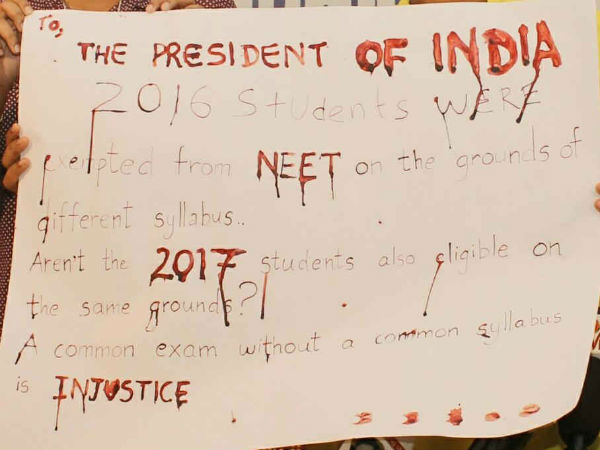 To,
THE PRESIDENT OF INDIA
2016 Students WERE
exempted from NEET on the grounds of
different syllabus..
Aren't the 2017 students also eligible on
the same grounds?
A common exam without a common syllabus
is INJUSTICE